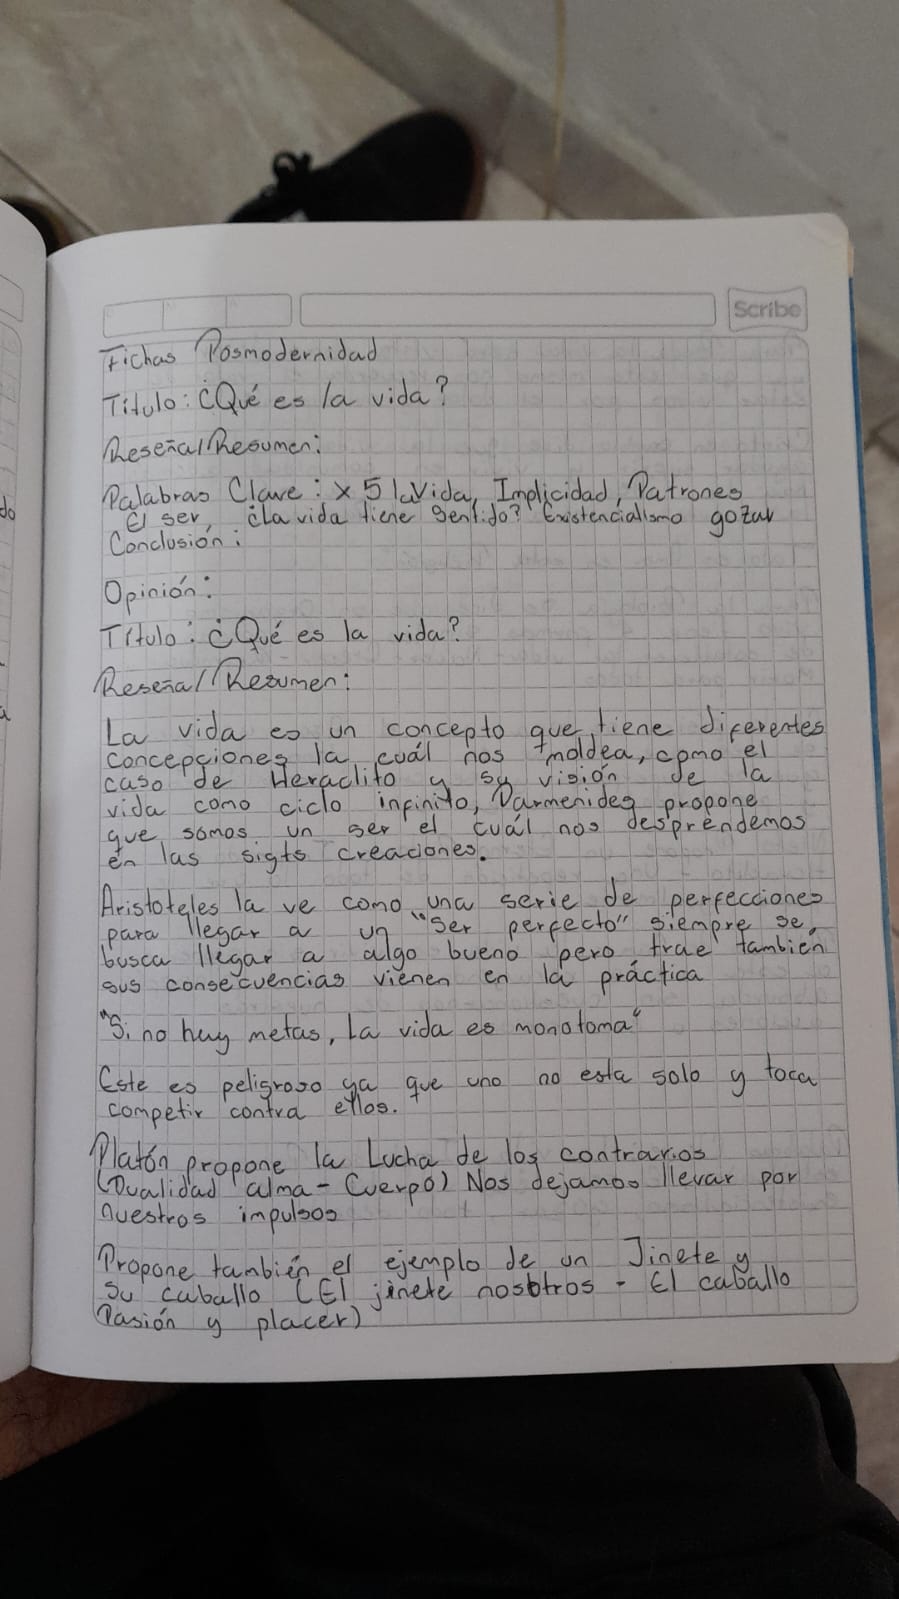 Scribe
Fichas Posmodernidad
Título: ¿Qué es la vida?
Reseña/Resumen:
Palabras Clave: x 5 la Vida, Implicidad, Patrones
El ser, ¿la vida tiene sentido? Existencialismo gozar
Conclusión:
Opinión:
Título: ¿Qué es la vida?
Reseña/Resumen:
La vida es un concepto que tiene diferentes
concepciones la cuál nos moldea, como el
caso de Heraclito y su visión de la
vida como ciclo infinito, Parmenides propone
que somos un ser el cuál nos desprendemos
en las sigts creaciones.
Aristoteles la ve como una serie de perfecciones
para llegar a un "Ser perfecto" siempre se
busca llegar a algo bueno pero trae también
sus consecuencias vienen en la práctica
"Si no hay metas, La vida es monotoma"
Este es peligroso ya que uno no esta solo y toca
competir contra ellos.
Platón propone la Lucha de los contrarios
(Dualidad alma - Cuerpo) Nos dejamos llevar por
nuestros impulsos
Propone también el ejemplo de un Jinete y
su caballo (El jinete nosotros - El caballo
Pasión y placer)
do
a